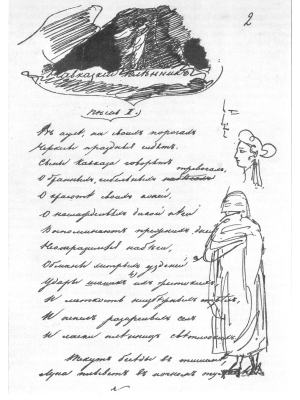 2
Кавказкій Плѣнникъ
Въ аулѣ, на своихъ порогахъ
Черкесы праздные сидятъ.
Сыны Кавказа говорятъ
тревогахъ,
О бранныхъ, гибельныхъ
О красотѣ своихъ коней,
О наслажденьяхъ дикой нѣги
Воспоминаютъ прежнихъ дней
Неотразимые набѣги,
Обманы хитрыхъ узденей,
Удары шашекъ ихъ жестокихъ,
И мѣткость неизбѣжныхъ стрѣлъ,
И пепелъ разоренныхъ селъ
И ласки плѣнницъ
Текутъ бесѣды въ тишинѣ
Луна плыветъ въ ночномъ